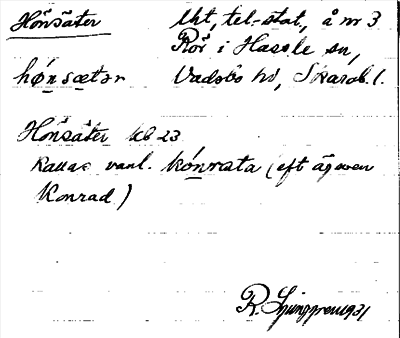 Hönsäter lht, tel-stat, å nr 3
Rör i Hassle sn,
hǿnsætər Vadsbo hd, Skarab. l.
Hönsäter kb 23
Kallas vanl. kónrata (eft ägaren
Konrad)
R. Ljunggren 1931